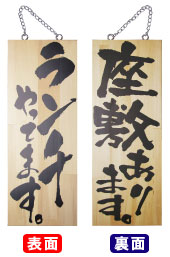 ランチ
やってます。
座敷
あり
ます。
表面
裏面